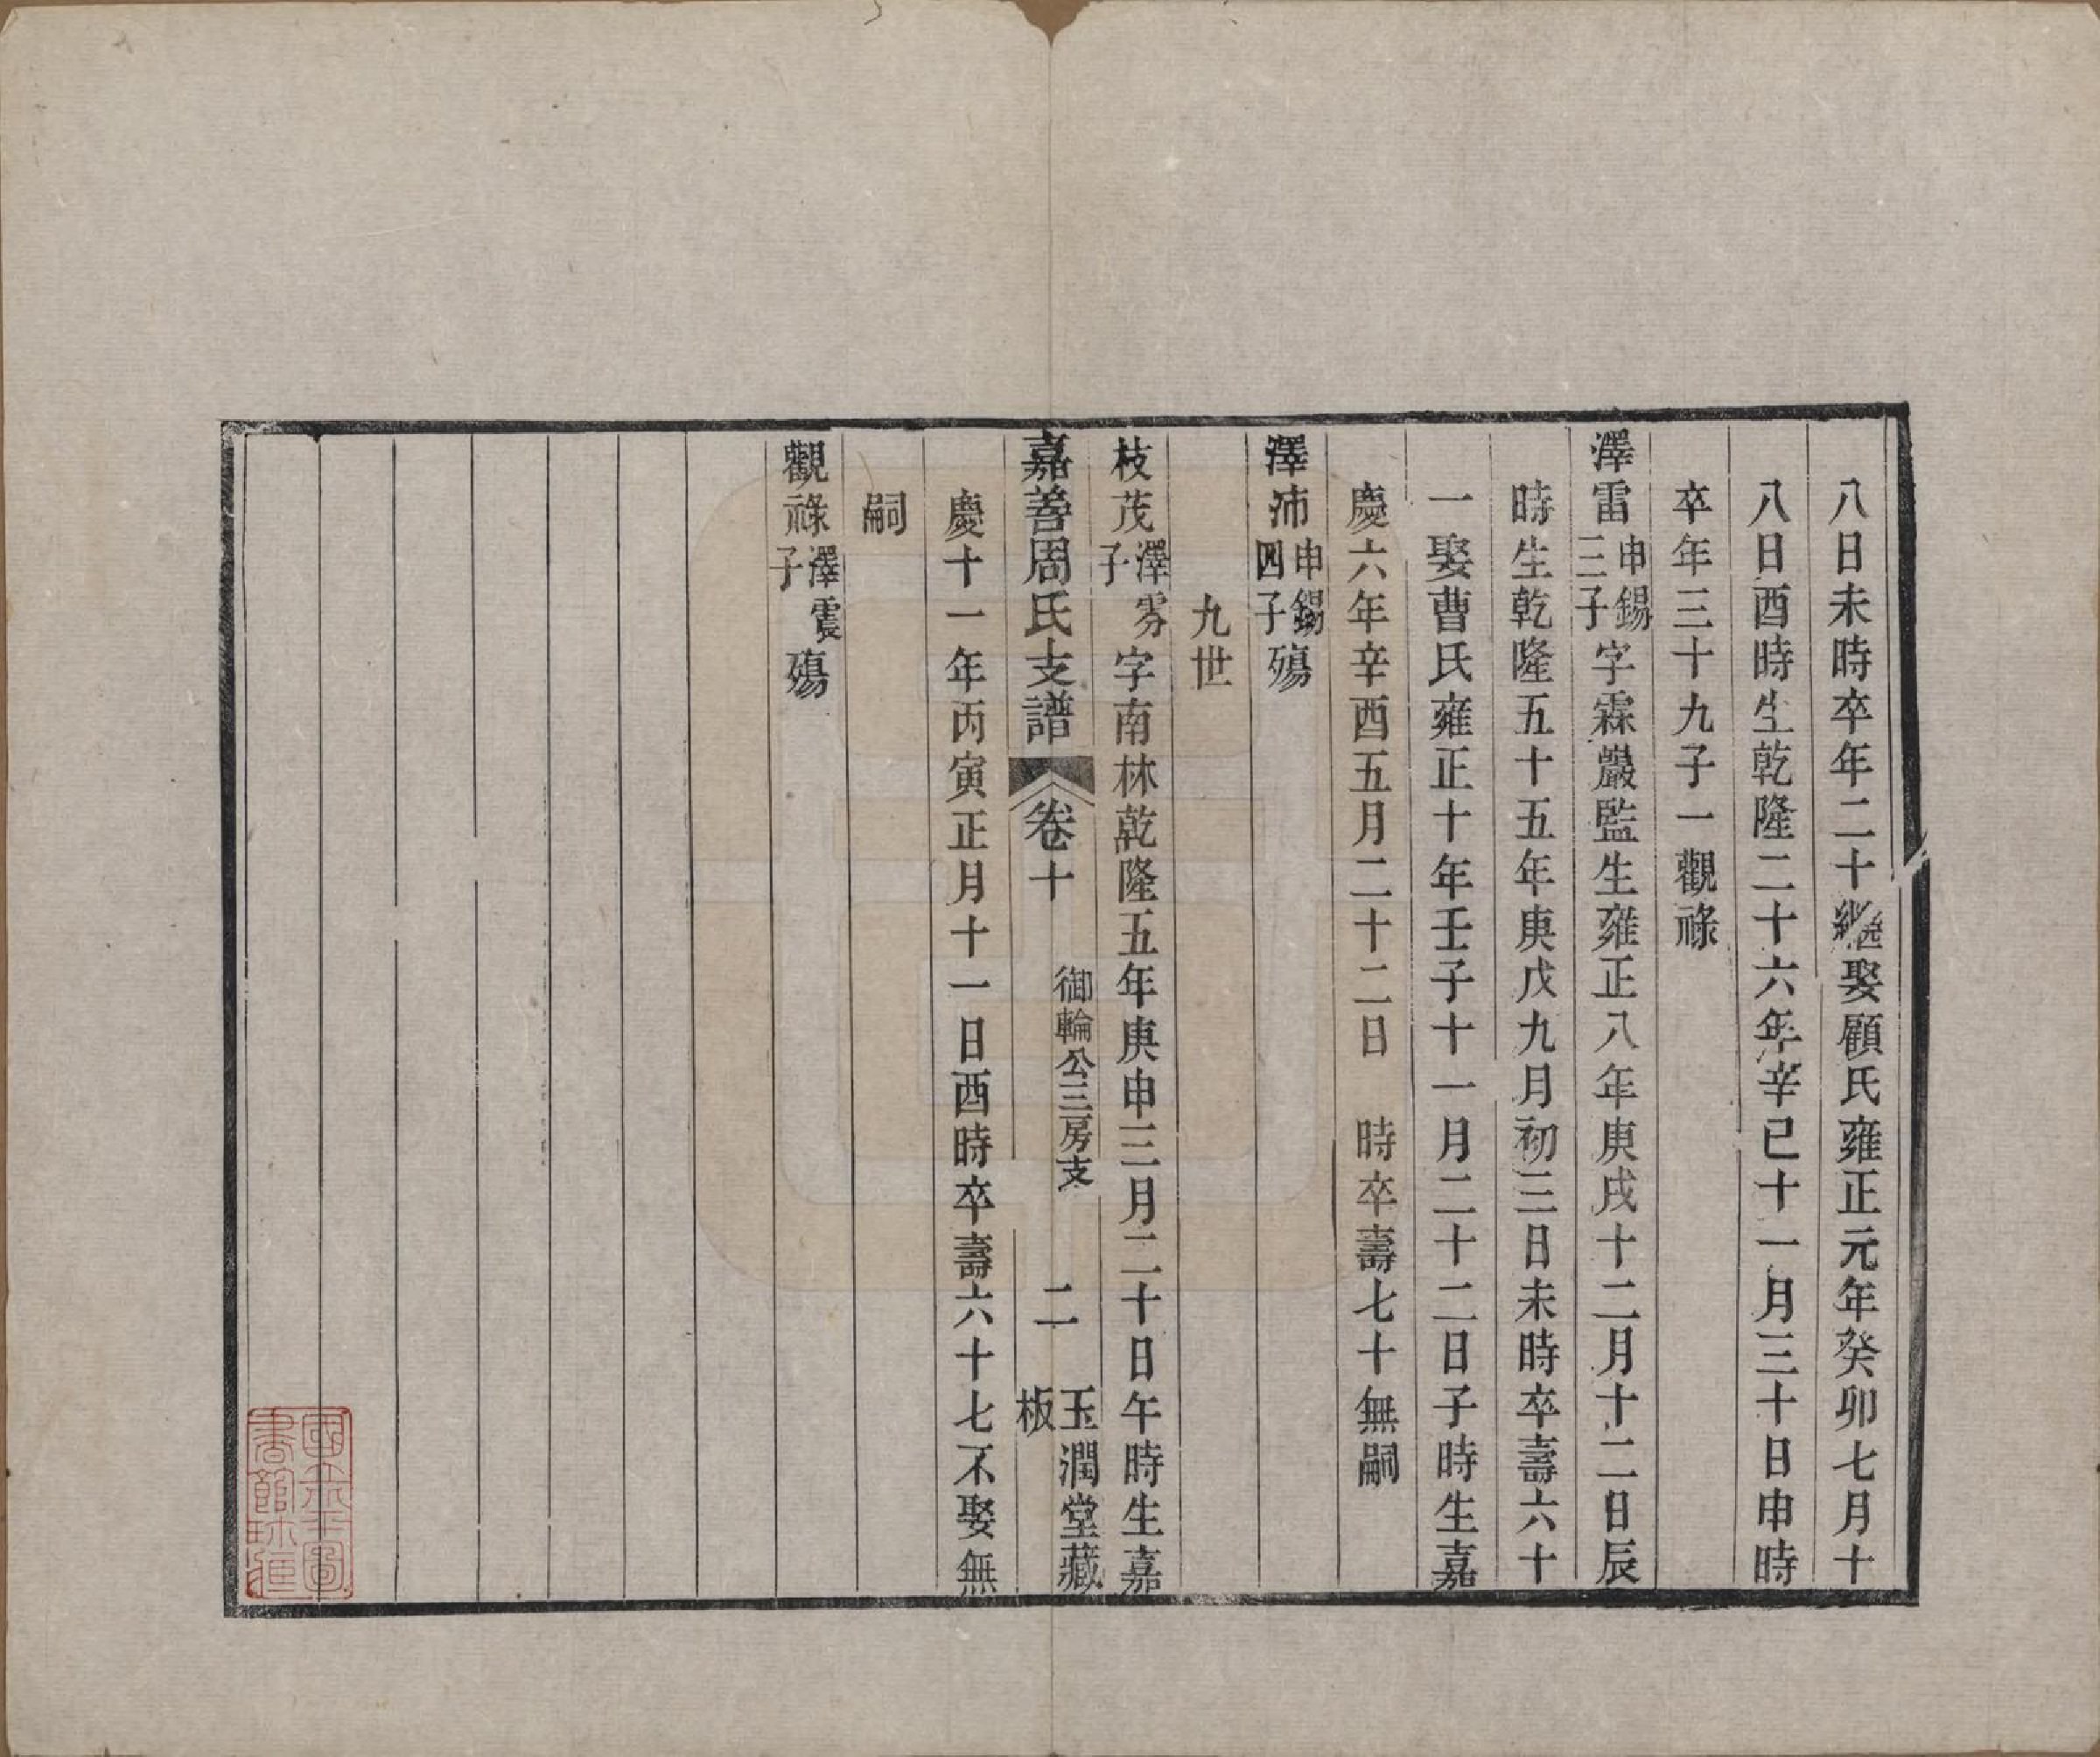 八日未時卒年二十繼娶顧氏雍正元年癸卯七月十
八日酉時生乾隆二十六年辛巳十一月三十日申時
卒年三十九子一觀祿
澤雷申錫三子字霖巖監生雍正八年庚戌十二月十二日辰
時生乾隆五十五年庚戌九月初三日未時卒壽六十
一娶曹氏雍正十年壬子十一月二十二日子時生嘉
慶六年辛酉五月二十二日　時卒壽七十無嗣
澤沛申錫四子殤
九世
枝茂澤雰子字南林乾隆五年庚申三月二十日午時生嘉
嘉善周氏支譜　卷十　御輪公三房支　二　玉潤堂藏板
慶十一年丙寅正月十一日酉時卒壽六十七不娶無
嗣
觀祿澤震子殤